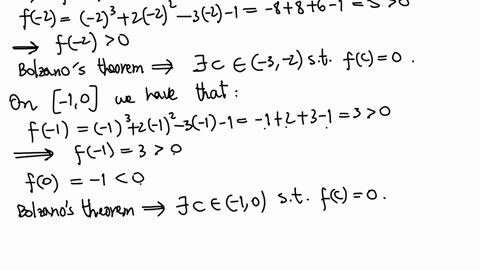 f(-2) = (-2)³ + 2(-2)² - 3(-2) - 1 = -8 + 8 + 6 - 1 = 5 > 0
⟹ f(-2) > 0
Bolzano's theorem ⟹ ∃ c ∈ (-3, -2) s.t. f(c) = 0.
On [-1, 0] we have that:
f(-1) = (-1)³ + 2(-1)² - 3(-1) - 1 = -1 + 2 + 3 - 1 = 3 > 0
⟹ f(-1) = 3 > 0
f(0) = -1 < 0
Bolzano's theorem ⟹ ∃ c ∈ (-1, 0) s.t. f(c) = 0.